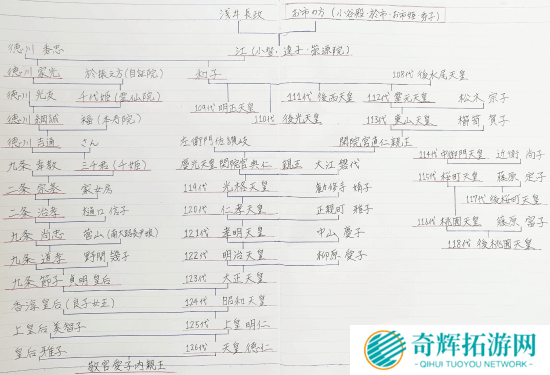 浅井長政 お市の方(小谷殿・於市・お市姫・秀子)
江(小督・達子・崇源院)
徳川 秀忠
徳川 家光 於振之方(自証院) 和子 108代 後水尾天皇
徳川 光友 千代姫(霊仙院) 111代 後西天皇 112代 霊元天皇 松木 宗子
109代 明正天皇 110代 後光天皇
徳川 綱誠 福(本寿院) 113代 東山天皇 櫛笥 賀子
徳川 吉通 さん 左衛門佐讃岐 閑院宮直仁親王
九条 幸教 三千君(千姫) 慶光天皇 閑院宮典仁 親王 大江 磐代 114代 中御門天皇 近衛 尚子
二条 宗基 家女房 119代 光格天皇 勧修寺 婧子 115代 桜町天皇 藤原 定子
117代 後桜町天皇
二条 治孝 樋口 信子 120代 仁孝天皇 正親町 雅子 116代 桃園天皇 藤原 富子
118代 後桃園天皇
九条 尚忠 菅山(南大路長尹娘) 121代 孝明天皇 中山 慶子
九条 道孝 野間 幾子 122代 明治天皇 柳原 愛子
九条 節子 貞明 皇后 123代 大正天皇
香淳 皇后(良子女王) 124代 昭和天皇
上皇后 美智子 125代 上皇 明仁
皇后 雅子 126代 天皇 徳仁
敬宮愛子内親王
奇辉拓游网
QIHUI TUOYOU NETWORK